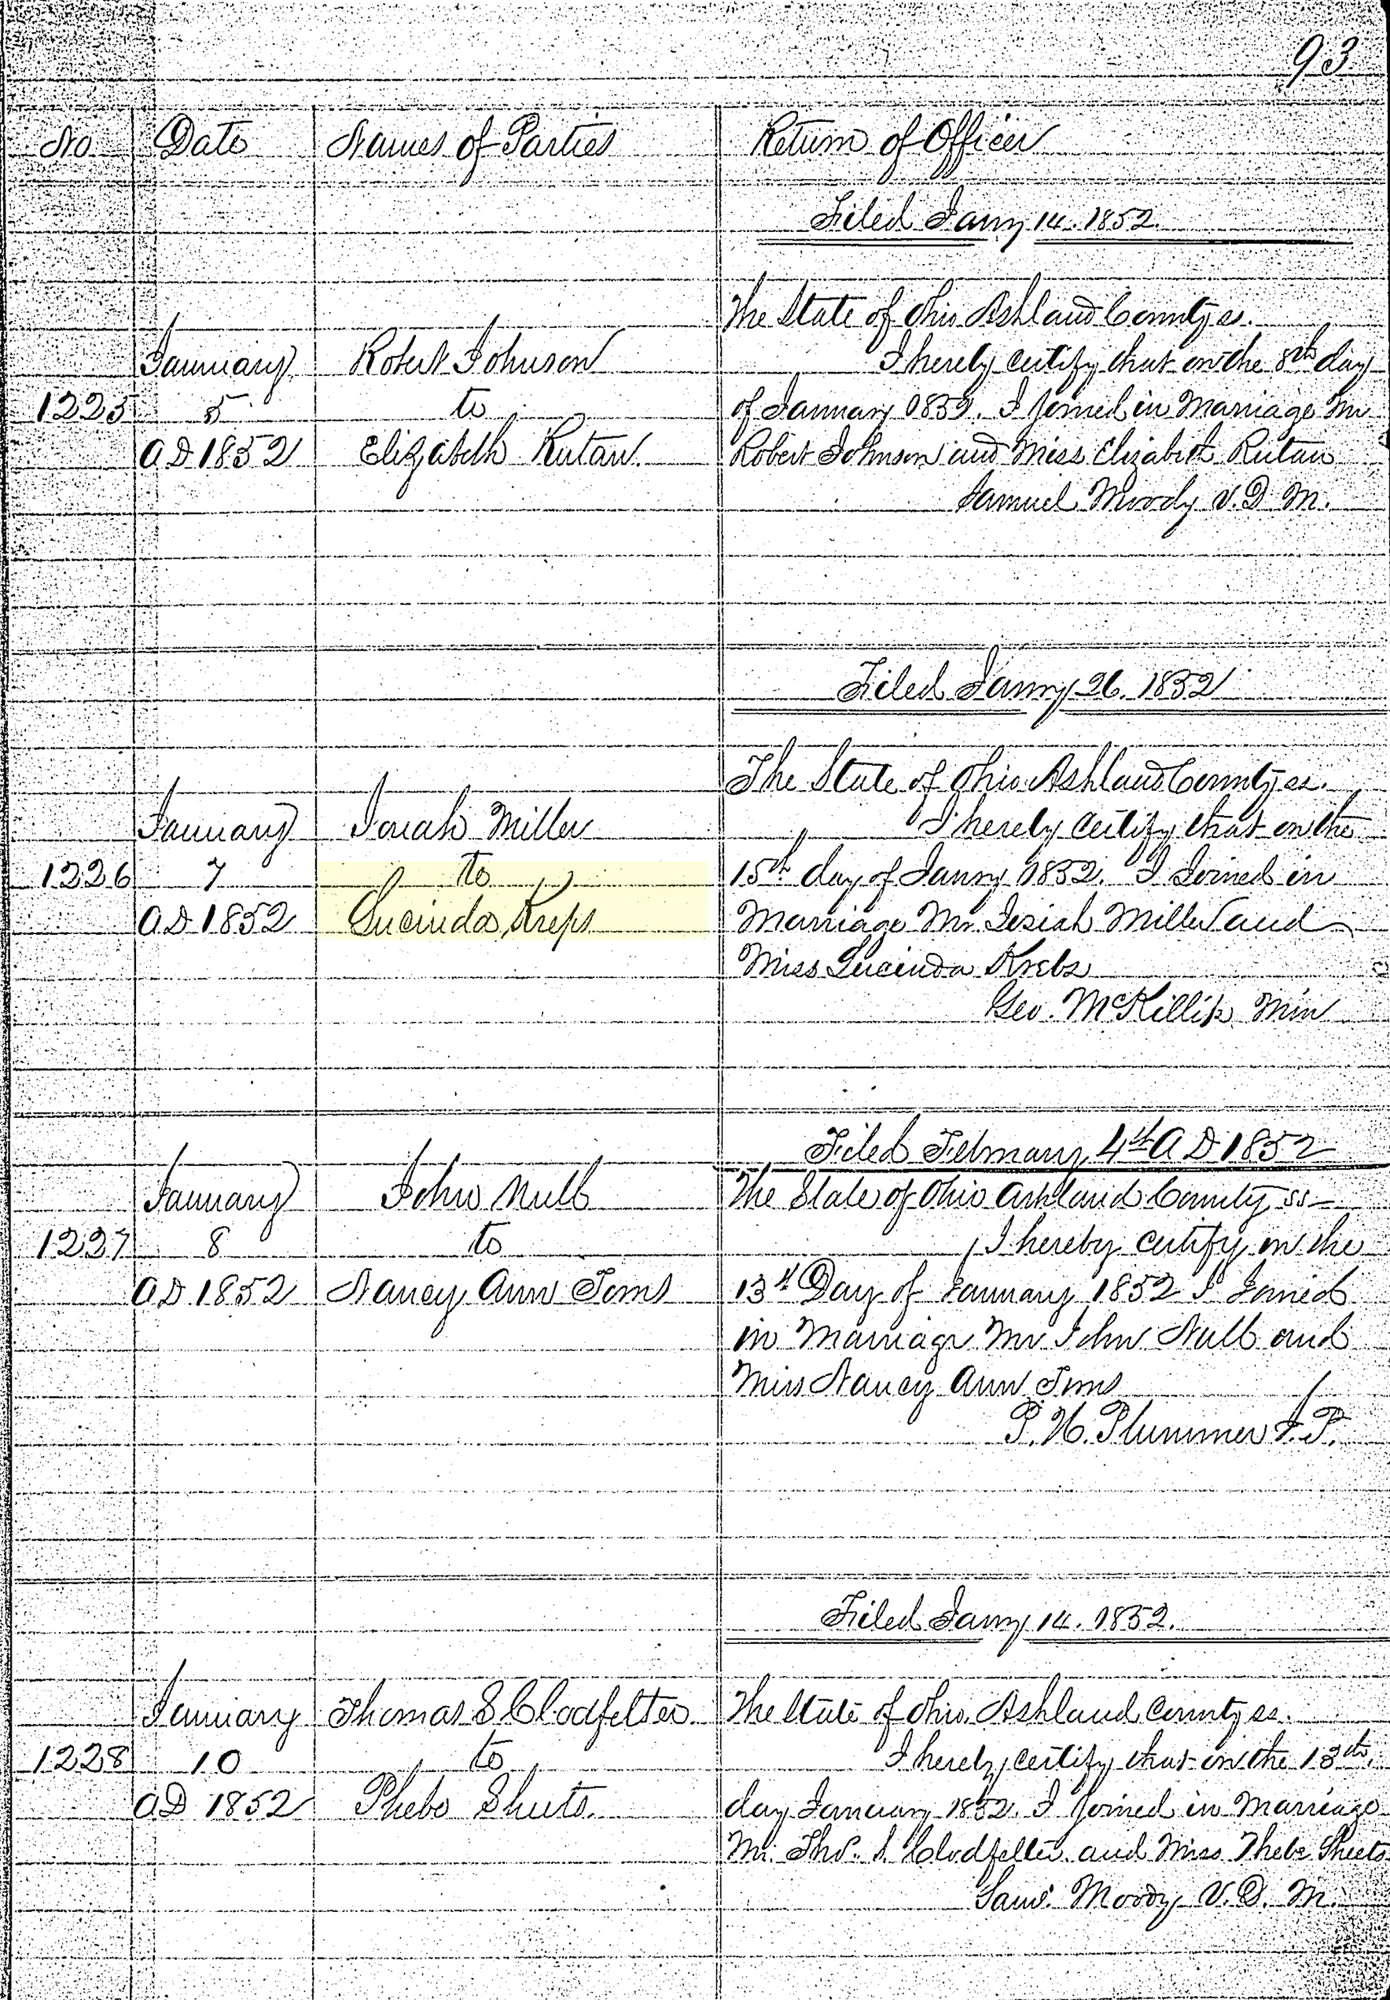 93
No Date Names of Parties Return of Officer
Filed Jany 14. 1852.
The State of Ohio Ashland County ss.
January Robert Johnson I hereby certify that on the 8th day
1225 5 to of January 1852. I joined in Marriage Mr
AD 1852 Elizabeth Rutan. Robert Johnson and Miss Elizabeth Rutan
Samuel Moody V. D. M.
Filed Jany 26. 1852
The State of Ohio Ashland County ss.
January Josiah Miller I hereby certify that on the
1226 7 to 15th day of Jany 1852. I Joined in
AD 1852 Lucinda Kreps Marriage Mr Josiah Miller and
Miss Lucinda Krebs
Geo. McKillip Min
Filed February 4th AD 1852
January John Null The State of Ohio Ashland County ss
1227 8 to I hereby certify on the
AD 1852 Nancy Ann Toms 13th Day of January 1852 I Joined
in Marriage Mr John Null and
Miss Nancy Ann Toms
P. H. Plummer J. P.
Filed Jany 14. 1852.
January Thomas S Clodfelter The State of Ohio Ashland County ss.
1228 10 to I hereby certify that on the 13th
AD 1852 Phebe Sheets. day January 1852. I joined in Marriage
Mr. Tho. S. Clodfelter and Miss Phebe Sheets
Saml. Moody V. D. M.